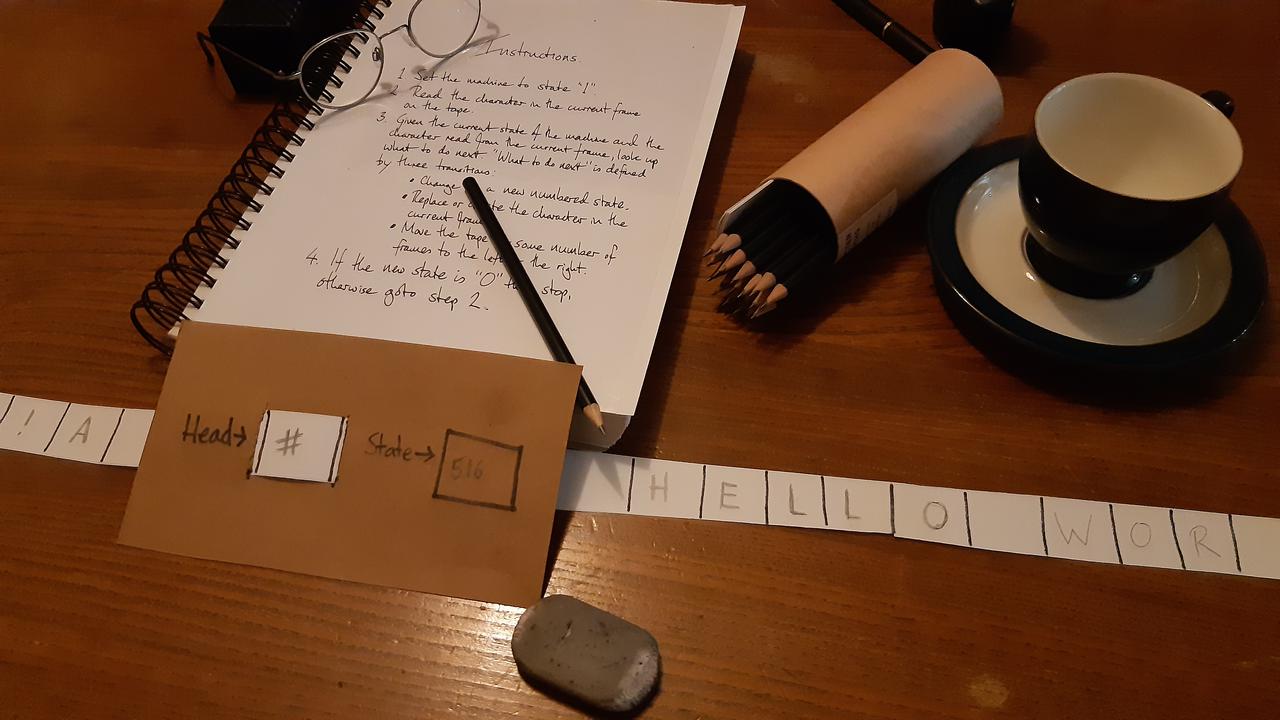 Instructions.
1. Set the machine to state "1".
2. Read the character in the current frame
on the tape.
3. Given the current state of the machine and the
character read from the current frame, look up
what to do next "What to do next" is defined
by three transitions:
• Change a new numbered state.
• Replace or the character in the
current
• Move the tape some number of
frames to the left the right.
4. If the new state is "0" stop,
otherwise goto step 2.
! A
Head→ # State→ 516
H E L L O W O R